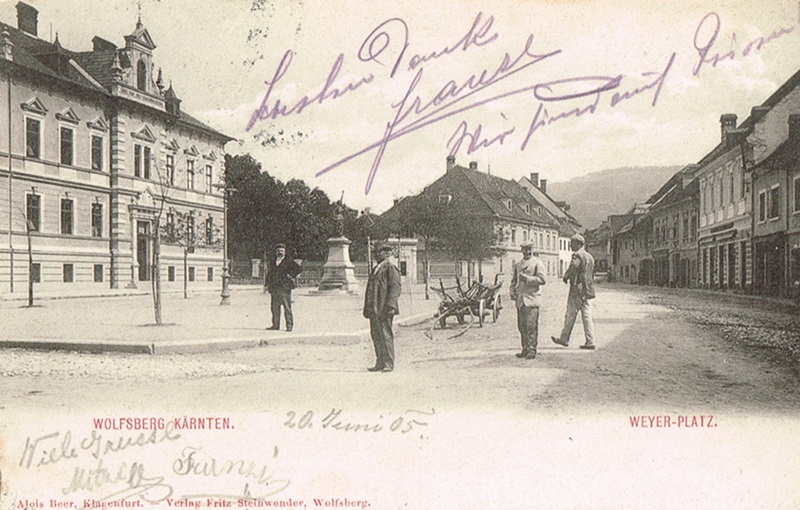 Besten Dank
Grausl
Wir sind auf
WOLFSBERG KÄRNTEN.
20. Juni 05.
WEYER-PLATZ.
Viele Grüsse
Alois Beer, Klagenfurt. — Verlag Fritz Steinwender, Wolfsberg.